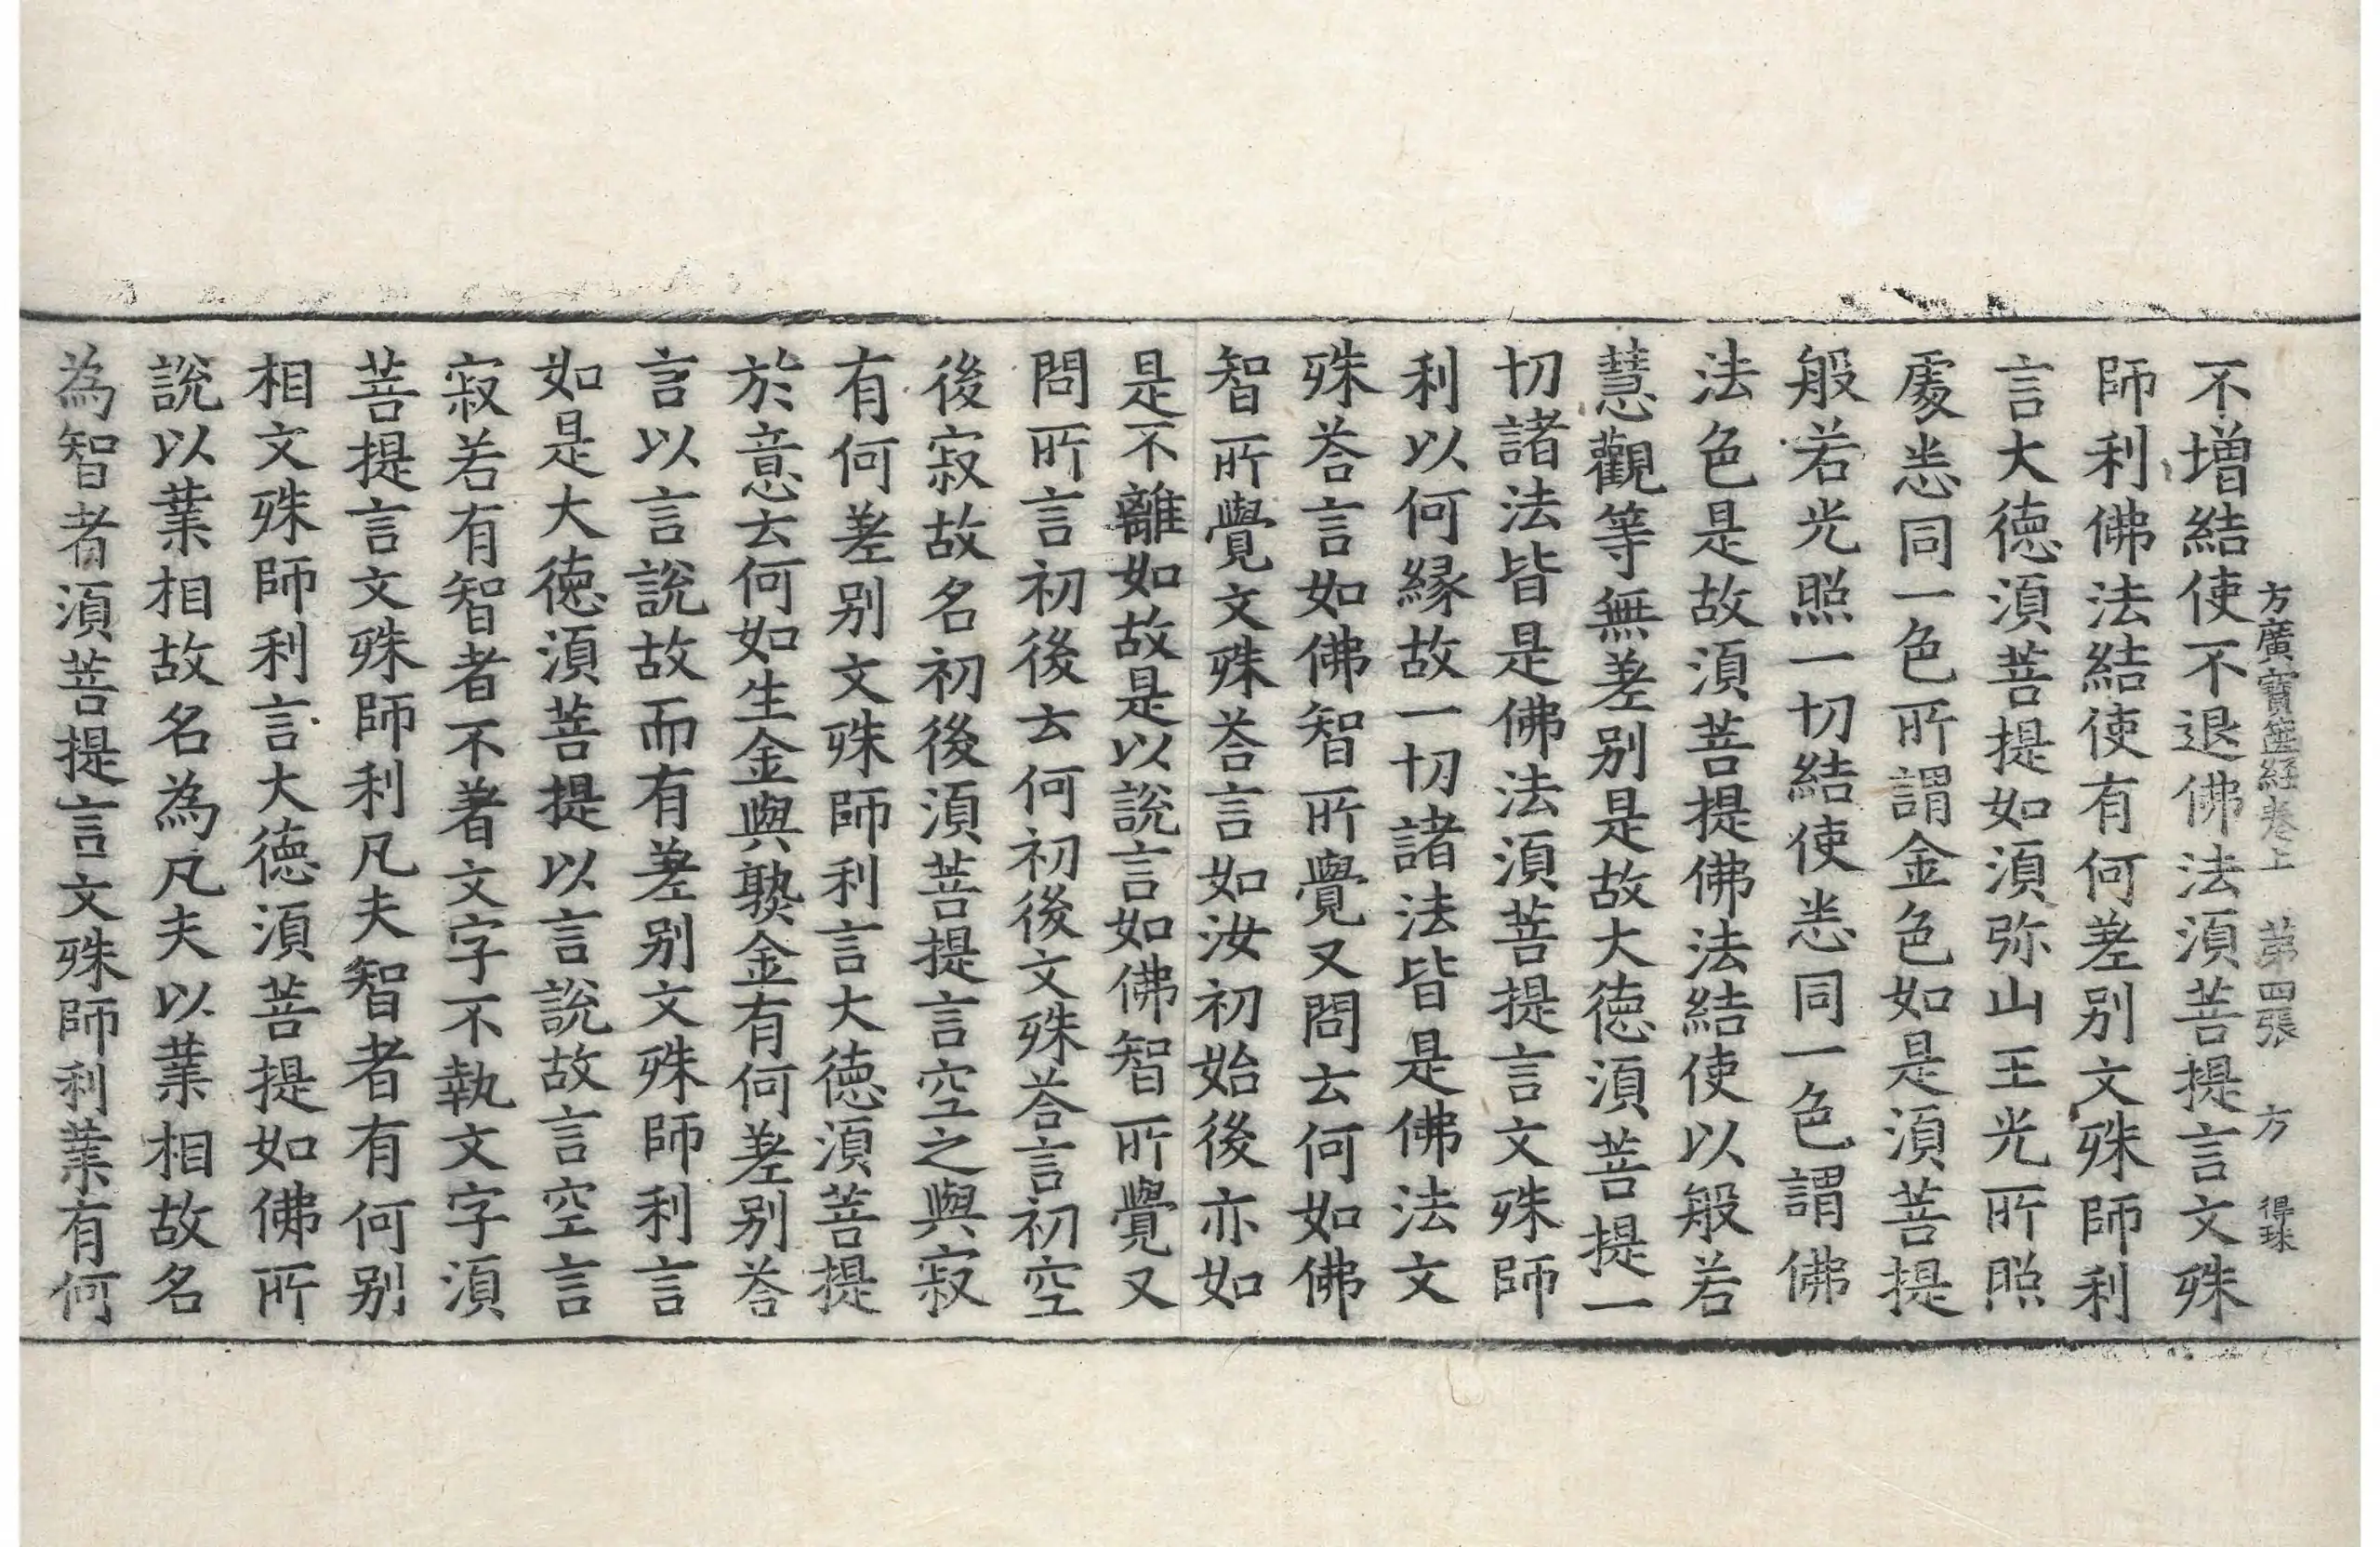 方廣寶篋經卷上　第四張　方　得珠
不增結使不退佛法湏菩提言文殊
師利佛法結使有何差別文殊師利
言大德湏菩提如湏弥山王光所照
處悉同一色所謂金色如是湏菩提
般若光照一切結使悉同一色謂佛
法色是故湏菩提佛法結使以般若
慧觀等無差別是故大德湏菩提一
切諸法皆是佛法湏菩提言文殊師
利以何縁故一切諸法皆是佛法文
殊荅言如佛智所覺又問云何如佛
智所覺文殊荅言如汝初始後亦如
是不離如故是以說言如佛智所覺又
問所言初後云何初後文殊荅言初空
後寂故名初後湏菩提言空之與寂
有何差別文殊師利言大德湏菩提
於意云何如生金與𤍠金有何差別荅
言以言說故而有差別文殊師利言
如是大德湏菩提以言說故言空言
寂若有智者不著文字不執文字湏
菩提言文殊師利凡夫智者有何別
相文殊師利言大德湏菩提如佛所
說以業相故名為凡夫以業相故名
為智者湏菩提言文殊師利業有何